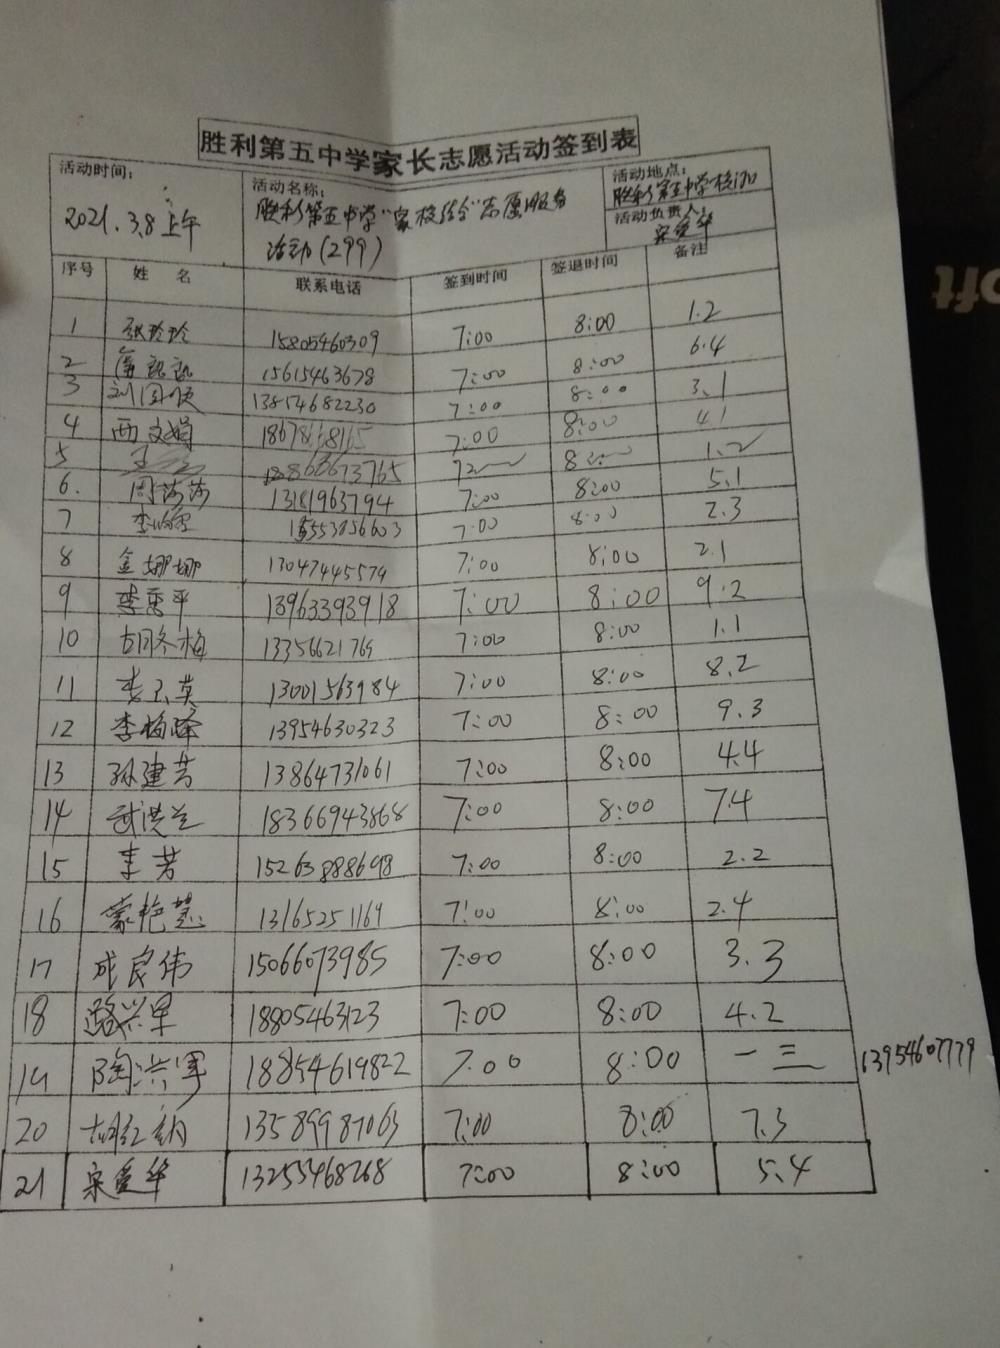 胜利第五中学家长志愿活动签到表
活动时间：
2021.3.8上午
活动名称：
胜利第五中学"家校结合"志愿服务
活动(299)
活动地点：
胜利第五中学校门口
活动负责人：
宋爱华
序号 姓 名 联系电话 签到时间 签退时间 备注
1 张玲玲 15805460309 7:00 8:00 1.2
2 15615463678 7:00 8:00 6.4
3 刘国顺 13854682230 7:00 8:00 3.1
4 西文娟 18678668165 7:00 8:00 4.1
5 8 1.2
6. 周莎莎 13181963794 7:00 8:00 5.1
7 15553856603 7:00 8:00 2.3
8 金娜娜 13047445574 7:00 8:00 2.1
9 平 13963393918 7:00 8:00 9.2
10 胡冬梅 13356621769 7:00 8:00 1.1
11 李玉英 13001563984 7:00 8:00 8.2
12 李梅峰 13954630323 7:00 8:00 9.3
13 孙建芳 13864731061 7:00 8:00 4.4
14 武洪兰 18366943868 7:00 8:00 7.4
15 李芳 15263888698 7:00 8:00 2.2
16 蒙艳慧 13165251169 7:00 8:00 2.4
17 成良伟 15066073985 7:00 8:00 3.3
18 路兴军 18805463123 7:00 8:00 4.2
19 陶洪军 18854619822 7.00 8:00 一三 13954607779
20 胡红娟 13589987063 7:00 8:00 7.3
21 宋爱华 13255468268 7:00 8:00 5.4